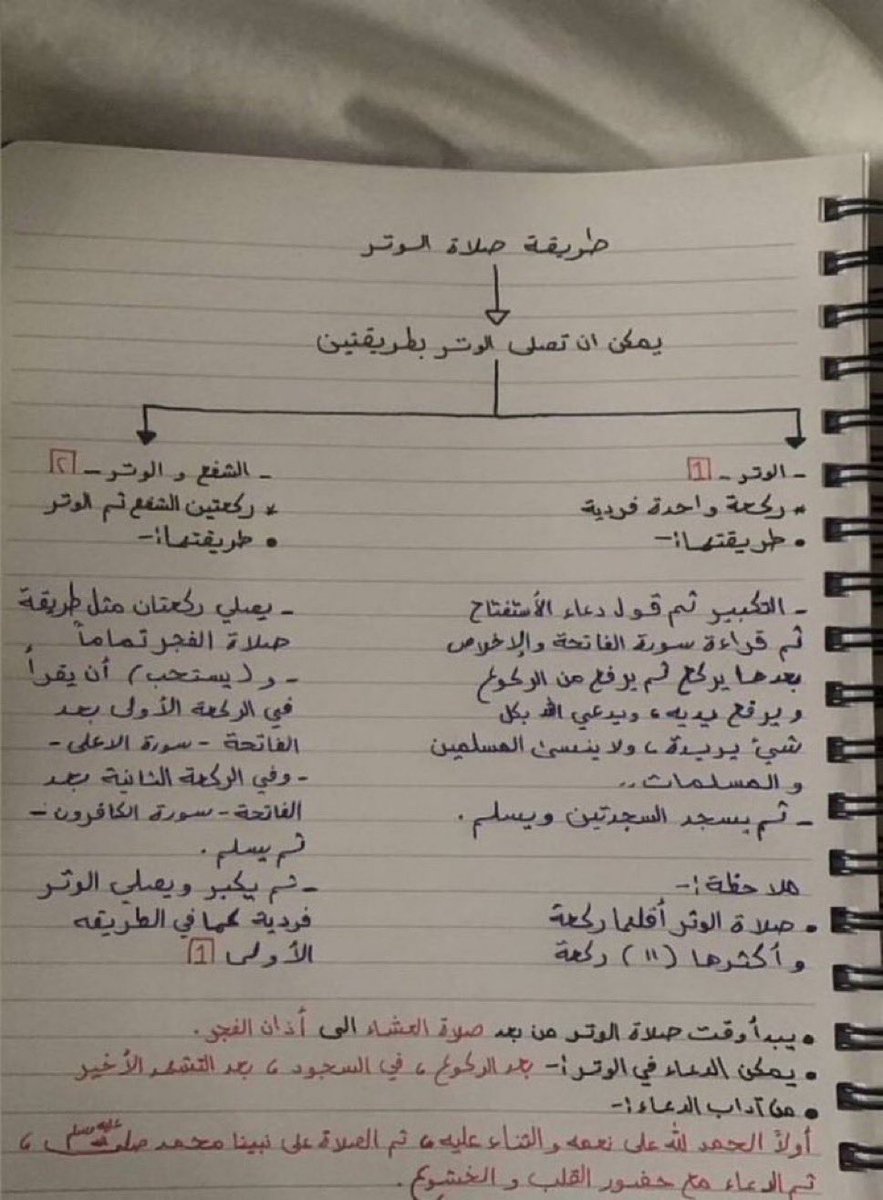 طريقة صلاة الوتر
يمكن ان تصلى الوتر بطريقتين
- الوتر - 1
* ركعة واحدة فردية
• طريقتها:-
- التكبير ثم قول دعاء الأستفتاح
ثم قراءة سورة الفاتحة والإخلاص
بعدها يركع ثم يرفع من الركوع
ويرفع يديه، ويدعي الله بكل
شيئ يريدة، ولا ينسى المسلمين
والمسلمات..
- ثم يسجد السجدتين ويسلم.
ملاحظة:-
• صلاة الوتر أقلها ركعة
وأكثرها (١١) ركعة
- الشفع والوتر - ٢
* ركعتين الشفع ثم الوتر
• طريقتها:-
- يصلي ركعتان مثل طريقة
صلاة الفجر تماماً
- و (يستحب) أن يقرأ
في الركعة الأولى بعد
الفاتحة - سورة الاعلى -
- وفي الركعة الثانية بعد
الفاتحة - سورة الكافرون -
ثم يسلم.
- ثم يكبر ويصلي الوتر
فردية كما في الطريقه
الأولى 1
• يبدأ وقت صلاة الوتر من بعد صلاة العشاء الى أذان الفجر.
• يمكن الدعاء في الوتر:- بعد الركوع، في السجود، بعد التشهد الأخير
• من آداب الدعاء:-
أولاً الحمد لله على نعمه والثناء عليه، ثم الصلاة على نبينا محمد صلى الله عليه وسلم،
ثم الدعاء مع حضور القلب والخشوع.